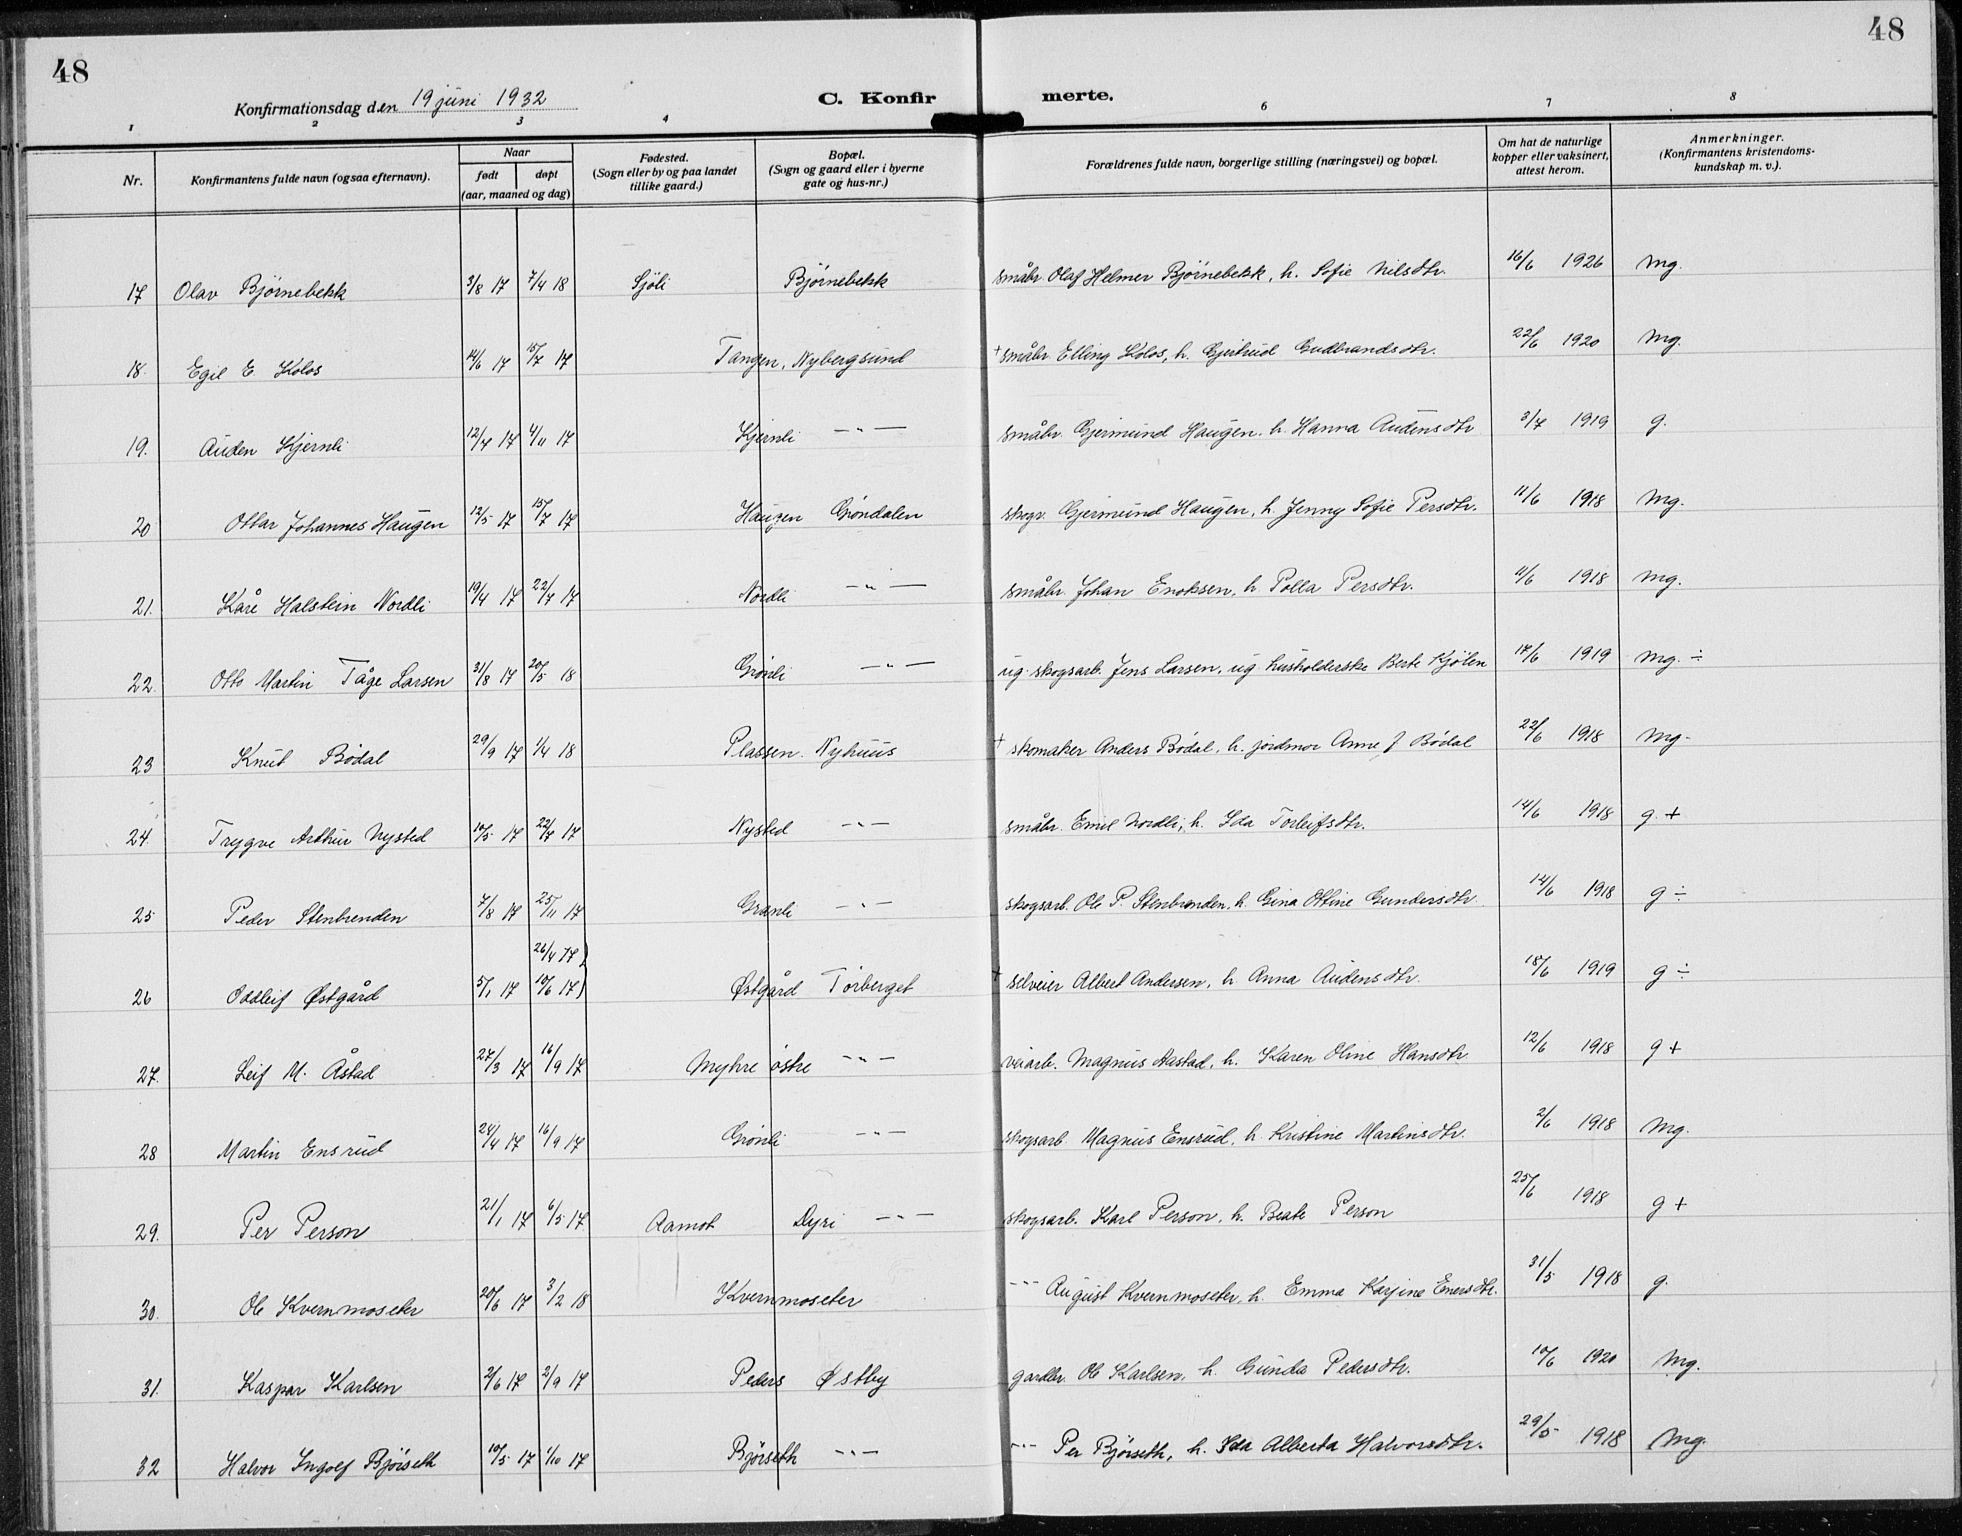 48
48
Konfirmationsdag den 19 juni 1932
C. Konfir
merte.
1 2 3 4 6 7 8
Nr.
Konfirmantens fulde navn (ogsaa efternavn).
Naar
født
døpt
(aar, maaned og dag)
Fødested.
(Sogn eller by og paa landet
tillike gaard.)
Bopæl.
(Sogn og gaard eller i byerne
gate og hus-nr.)
Forældrenes fulde navn, borgerlige stilling (næringsvei) og bopæl.
Om hat de naturlige
kopper eller vaksinert,
attest herom.
Anmerkninger.
(Konfirmantens kristendoms-
kundskap m. v.).
17 Olav Bjørnebekk 3/8 17 7/4 18 Sjöli Bjørnebekk småbr. Olaf Helmer Bjørnebekk, h. Sofie Nilsdtr. 16/6 1926 Mg.
18. Egil E. Kolos 14/6 17 15/7 17 Tangen, Nybergsund + småbr. Elling Kolos, h. Gjertrud Gudbrandsdtr. 22/6 1920 Mg.
19. Auden Kjernli 12/7 17 4/11 17 Kjernli —"— småbr. Gjermund Haugen. h. Hanna Audensdtr 3/7 1919 g.
20 Ottar Johannes Haugen 12/5 17 15/7 17 Haugen Gröndalen skogv. Gjermund Haugen, h. Jenny Sofie Persdtr. 11/6 1918 Mg.
21. Kåre Halstein Nordli 19/4 17 22/7 17 Nordli —"— småbr. Johan Enoksen, h. Polla Persdtr. 11/6 1918 Mg.
22. Otto Martin Tåge Larsen 31/8 17 20/5 18 Grönli —"— ug. skogsarb. Jens Larsen, ug. husholderske Berte Kjölen 17/6 1919 Mg. ÷
23 Knut Bödal 29/9 17 1/4 18 Plassen. Nyhuus + skomaker Anders Bödal, h. jordmor Anne J Bödal 22/6 1918 Mg.
24. Trygve Arthur Nysted 10/5 17 22/7 17 Nysted —"— småbr. Emil Nordli, h. Ida Torleifsdtr. 14/6 1918 g. +
25 Peder Stenbrenden 7/8 17 25/11 17 Granli —"— skogsarb. Ole P. Stenbrenden, h. Gina Ottine Gundersdtr. 14/6 1918 g ÷
26/4 17)
26 Oddleif Østgård 5/1 17 10/6 17) Østgård Törberget + selveier Albert Andersen, h. Anna Audensdtr. 18/6 1919 g ÷
27. Leif M. Åstad 27/3 17 16/9 17 Myhre östre —"— veiarb. Magnus Aastad, h. Karen Oline Hansdtr 12/6 1918 g +
28 Martin Ensrud 24/4 17 16/9 17 Grönli —"— skogsarb. Magnus Ensrud, h. Kristine Martinsdtr. 2/6 1918 Mg.
29. Per Person 21/1 17 6/5 17 Aamot Dyri —"— skogsarb. Karl Person, h. Beate Person 25/6 1918 g +
30. Ole Kvernmoseter 20/6 17 3/2 18 Kvernmoseter —"— August Kvernmoseter, h. Emma Karjine Enersdtr. 31/5 1918 g.
31. Kaspar Karlsen 2/6 17 2/9 17 Peders Østby gardbr. Ole Karlsen, h. Gunda Pedersdtr. 10/6 1920 Mg.
32 Halvor Ingolf Bjørseth 10/5 17 1/10 17 Bjørseth —"— —"— Per Bjørseth, h. Ida Alberta Halvorsdtr. 29/5 1918 Mg.